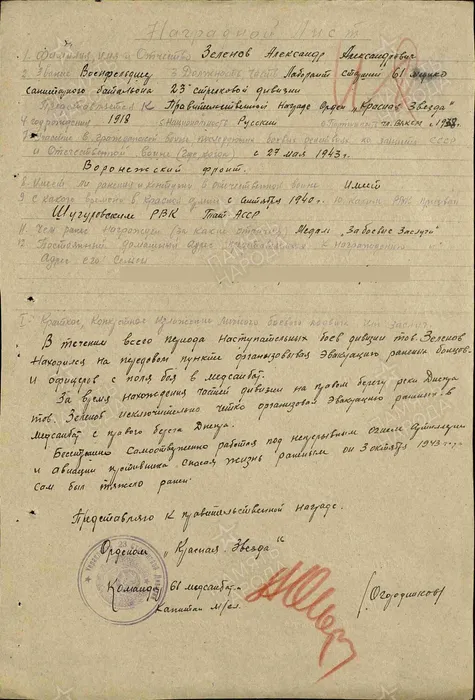 Наградной лист
1. Фамилия, имя и Отчество Зеленов Александр Александрович
2. Звание Военфельдшер 3. Должность, часть Лаборант стушей 61 медико
санитарного батальона 23ᵉй стрелковой дивизии
Представляется к Правительственной Награде Орден „Красная Звезда"
4. год рождения 1918 5. национальность Русский чл. ВЛКСМ с 1938.
и Отечественной войне (где, когда) с 27 мая 1943 г.
Воронежский фронт.
8. Имеет ли ранения и контузии в отечественной войне Имеет
9. С какого времени в Красной армии с октября 1940 г. 10. каким РВК призван
Шугуровским РВК Тат АССР
11. Чем ранее награжден (за какие отличия) Медаль „За боевые Заслуги"
12. Постоянный домашний адрес представляемого к награждению и
адрес его семьи
I. Краткое, конкретное изложение личного боевого подвига или заслуг
В течении всего периода наступательных боев дивизии тов. Зеленов
находился на передовом пункте организовывая эвакуацию раненых бойцов
и офицеров с поля боя в медсанбат.
За время нахождения частей дивизии на правом берегу реки Днепра
тов. Зеленов исключительно четко организовал эвакуацию раненых в
медсанбат с правого берега Днепра.
Бесстрашно самоотверженно работая под непрерывным огнем артиллерии
и авиации противника спасая жизнь раненым он 3 октября 1943 г.
сам был тяжело ранен.
Представляю к правительственной награде.
Орденом „Красная Звезда"
Командир 61 медсанбат.
Капитан м/сл. /Огородников/